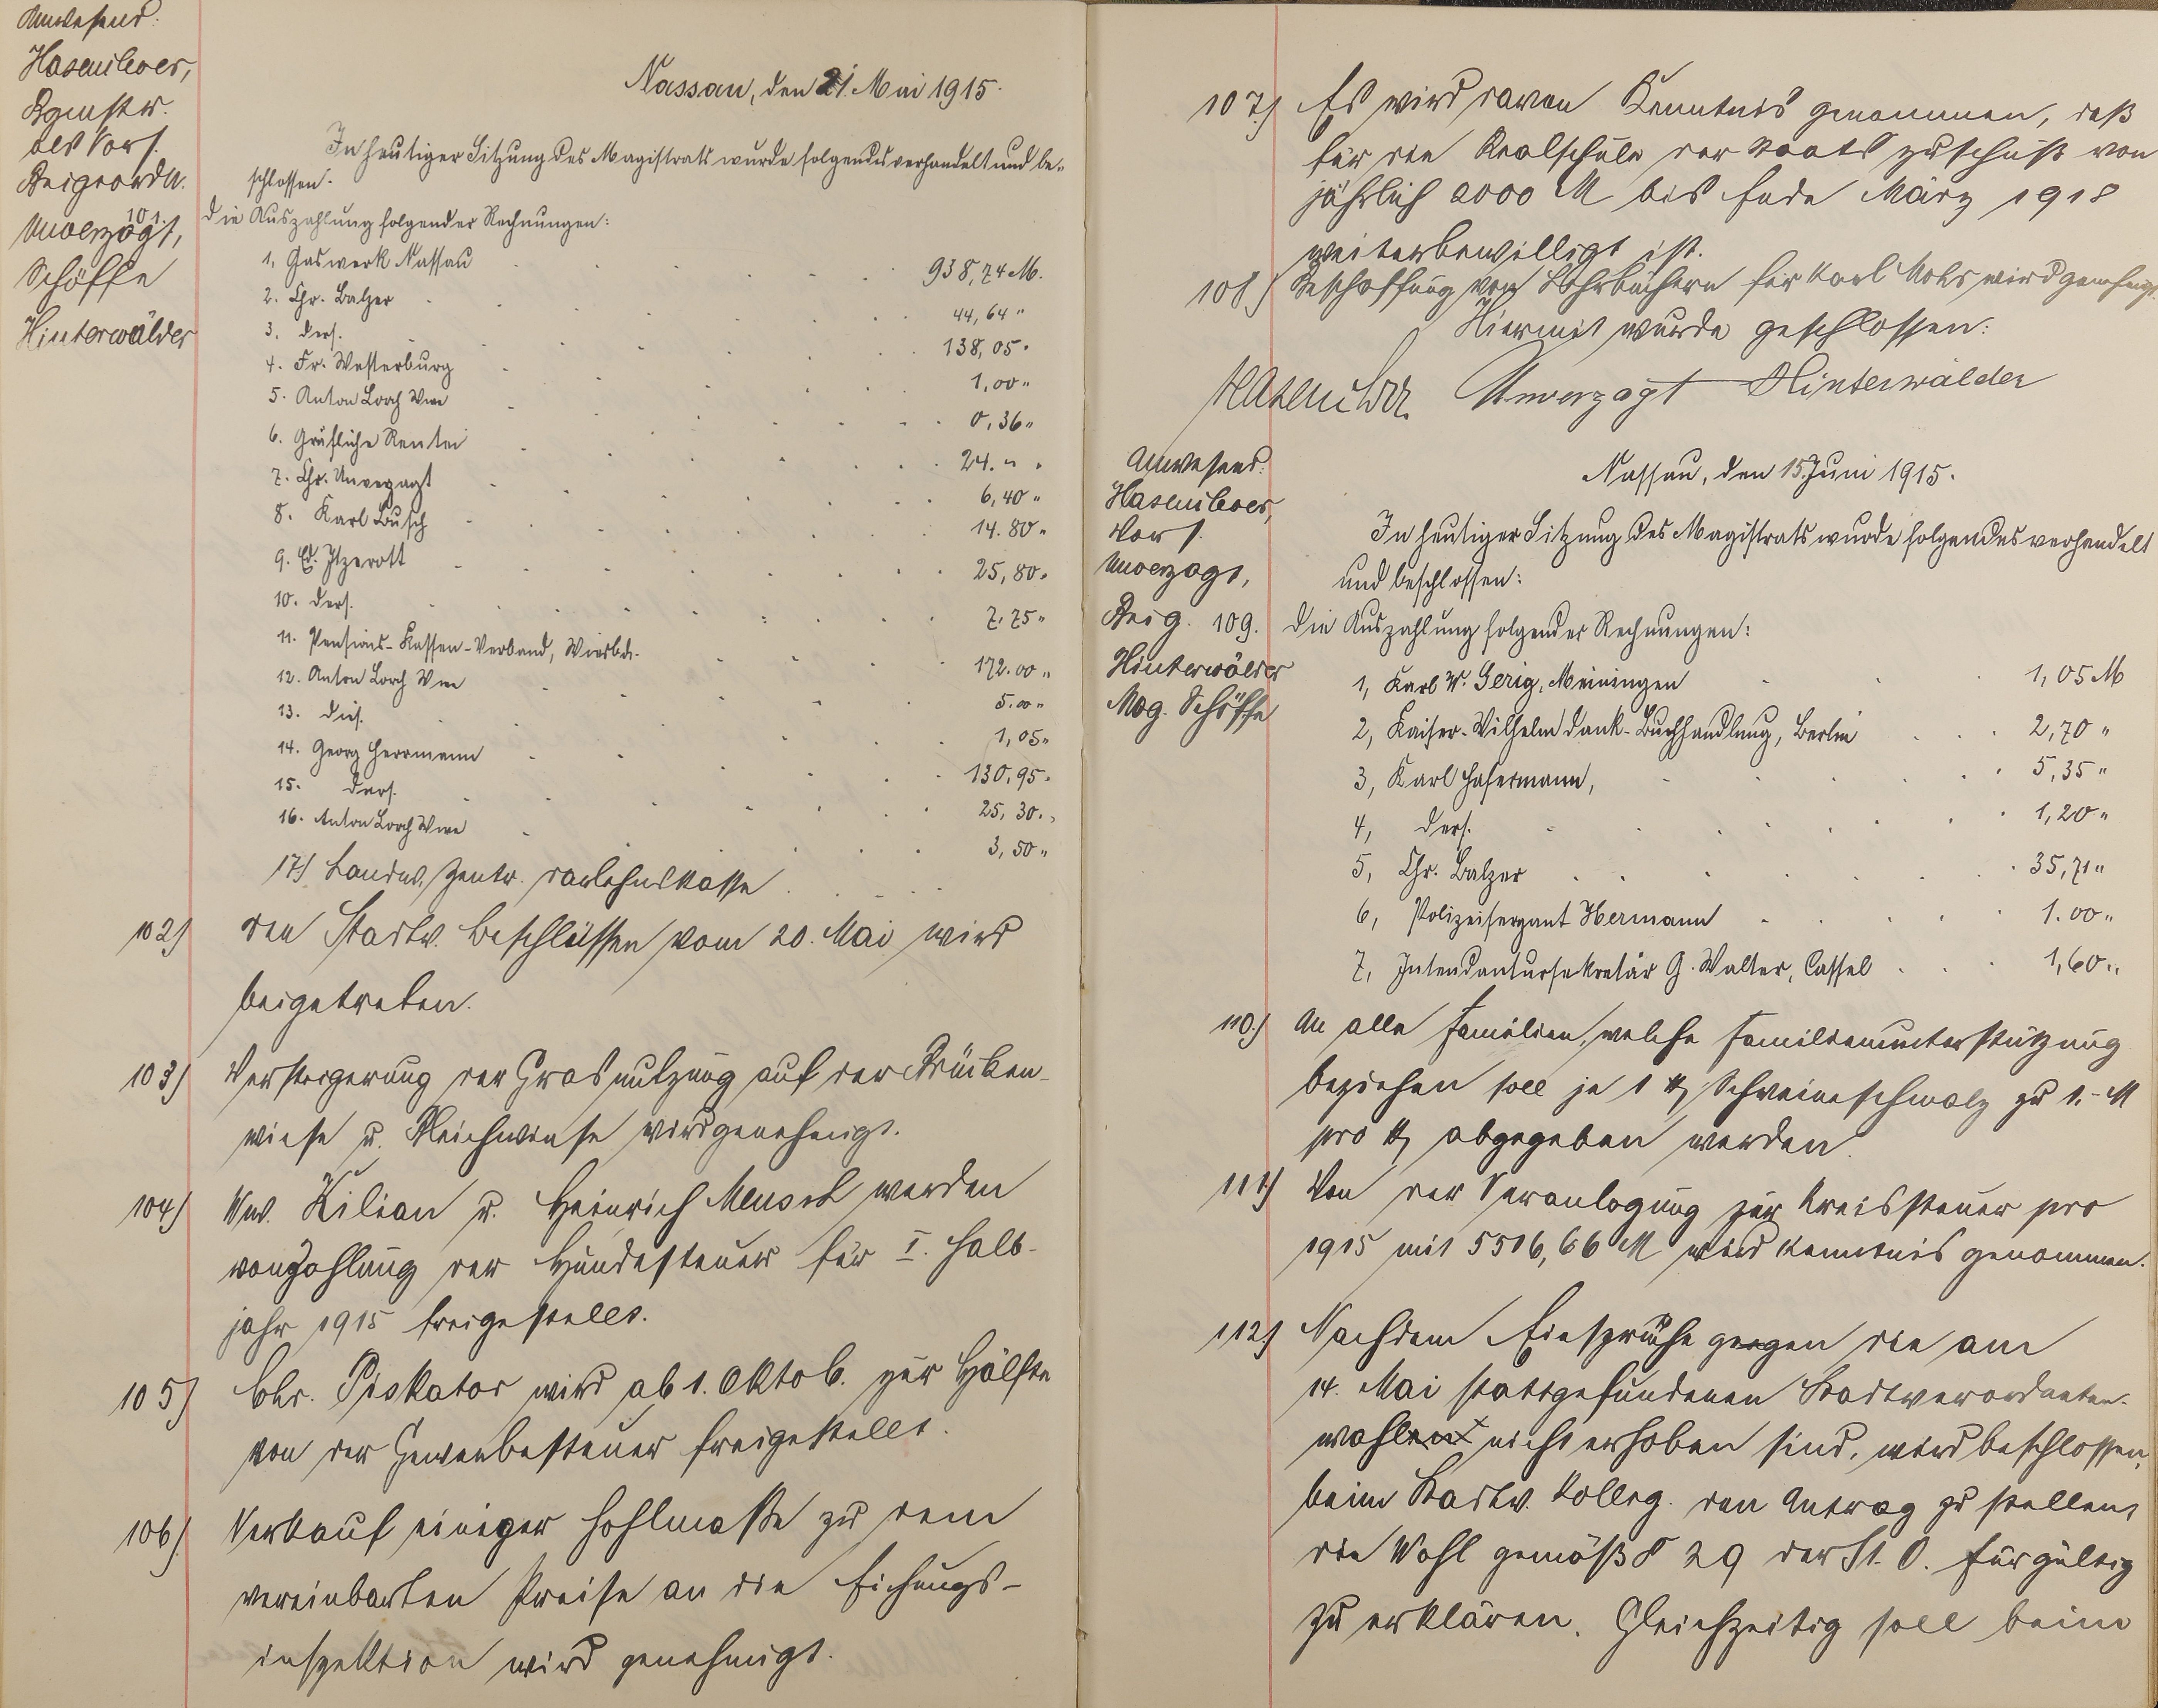 Anwesend:
Hasenclever,
Bgmstr.
als Vors.
Beigeordn.
Unverzagt,
Schöffe
Hinterwälder
Nassau, den 21. Mai 1915.
In heutiger Sitzung des Magistrats wurde folgendes verhandelt und be-
schlossen.
101. die Auszahlung folgender Rechnungen:
1, Gaswerk Nassau 938,74 M.
2. Chr. Balzer 44,64 "
3. ders. 138,05 "
4. Fr. Westerburg 1,00 "
5. Anton Lorch Wwe 0,36 "
6. Gräfliche Rentei 24. " "
7. Chr. Unverzagt 6,40 "
8. Karl Busch 14.80 "
9. Ed. Itzerott 25,80 "
10. ders. 7.75 "
11. Pensions-Kassen-Verband, Wiesbd. 172.00 "
12. Anton Lorch Wwe 5.00 "
13. dies. 1,05 "
14. Georg Herrmann 130,95 "
15. ders. 25,30 "
16. Anton Lorch Wwe 3,50 "
17) Landw. Zentr. darlehnskasse
102) den Stadtv. Beschlüssen vom 20. Mai wird
beigetreten.
103) Versteigerung der Grasnutzung auf der Brücken-
wiese u. Bleichwiese wird genehmigt.
104) Ww. Kilian u. Heinrich Meusch werden
von Zahlung der Hundesteuer für I. Halb-
jahr 1915 freigestellt.
105) Chr. Piskator wird ab 1. Oktob. zur Hälfte
von der Gewerbesteuer freigestellt.
106) Verkauf einiger Hohlmaße zu dem
vereinbarten Preise an die Eichungs-
inspektion wird genehmigt.
107) Es wird davon Kenntnis genommen, daß
für die Realschule der Staatszuschuß von
jährlich 2000 M bis Ende März 1918
weiterbewilligt ist.
108) Beschaffung von Lehrbüchern für Karl Mohr wird genehmigt.
Hiermit wurde geschlossen:
Hasenclever Unverzagt Hinterwälder
Anwesend:
Hasenclever,
Vors.
Unverzagt,
Beig.
Hinterwälder
Mag. Schöffe
Nassau, den 15. Juni 1915.
In heutiger Sitzung des Magistrats wurde folgendes verhandelt
und beschlossen:
109. die Auszahlung folgender Rechnungen:
1, Karl W. Gerig, Meiningen 1,05 M
2, Kaiser-Wilhelm dank-Buchhandlung, Berlin 2,70 "
3, Karl Hasermann, 5,35 "
4, ders. 1,20 "
5, Chr. Balzer 35,71 "
6, Polizeisergant Hermann 1.00 "
7, Intendantursekretär G. Walter, Cassel 1,60 "
110.) An alle Familien, welche Familienunterstützung
beziehen soll je 1 ℔ Schweineschmalz zu 1.- M
pro ℔ abgegeben werden.
111) Von der Veranlagung zur Kreissteuer pro
1915 mit 5516,66 M wird Kenntnis genommen.
112) Nachdem Einsprüche gegen die am
14. Mai stattgefundenen Stadtverordneten-
wahlen nicht erhoben sind, wird beschlossen,
beim Stadtv. Kolleg. den Antrag zu stellen,
die Wahl gemäß § 29 der St. O. für gültig
zu erklären. Gleichzeitig soll beim